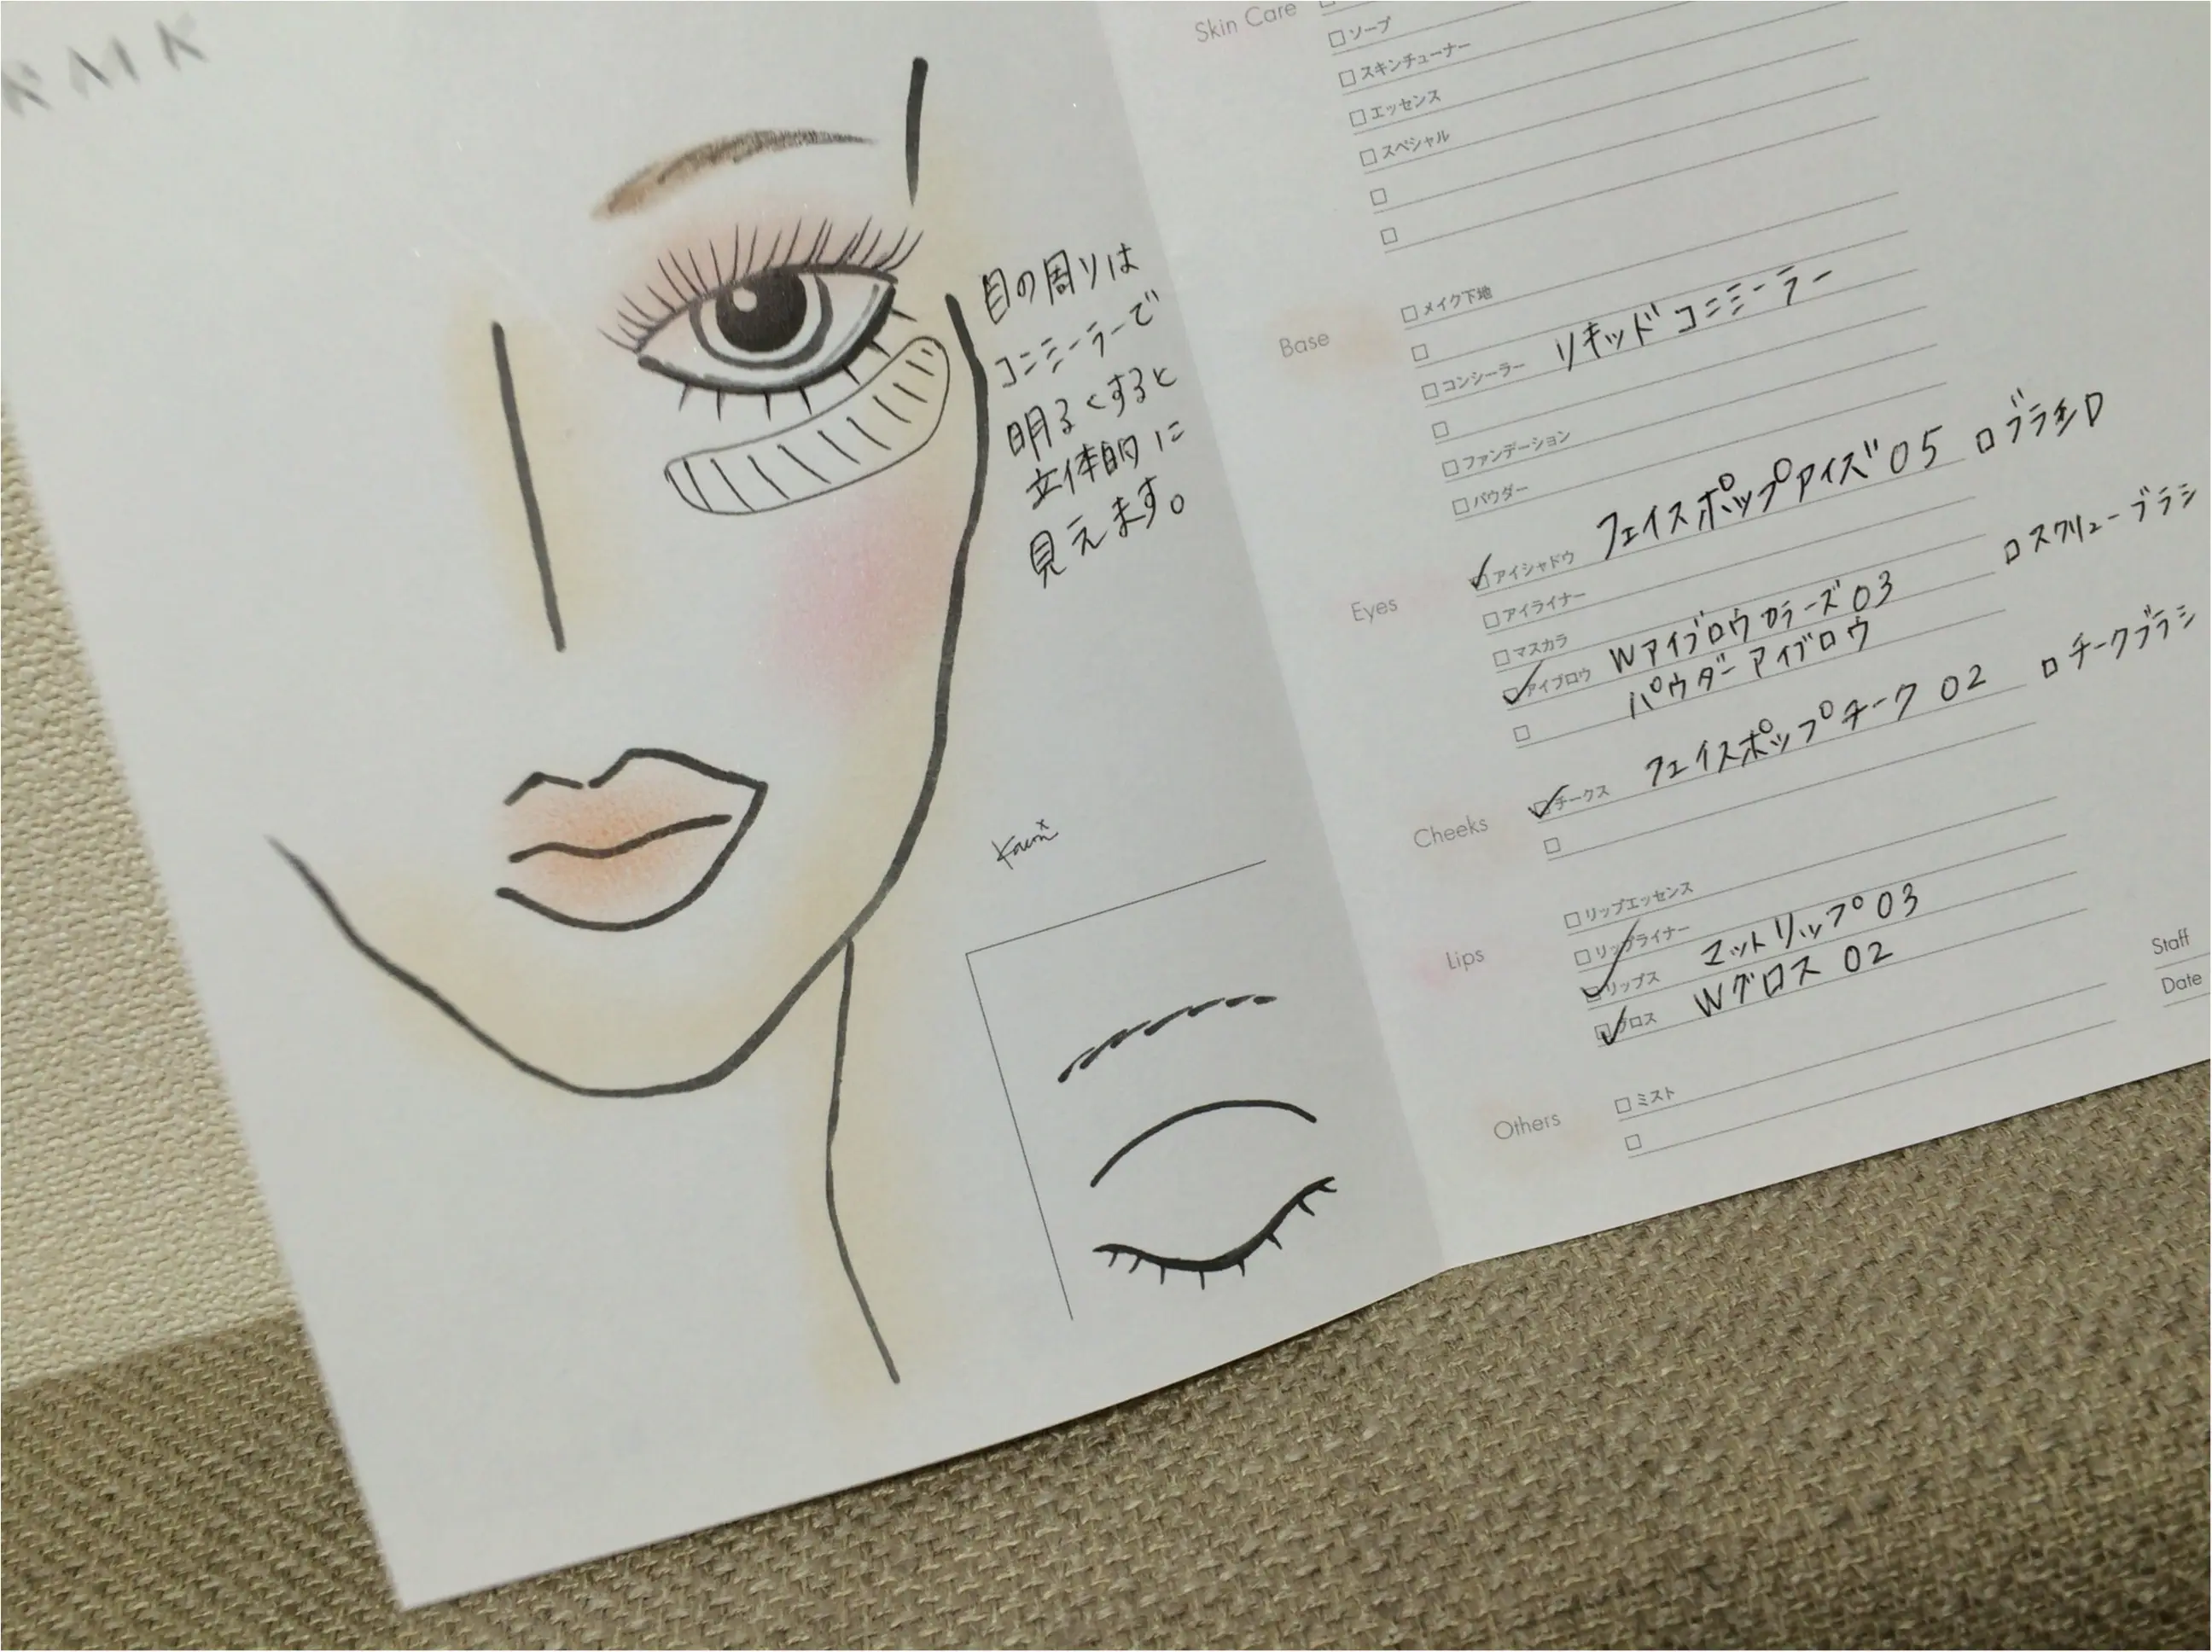 RMK
目の周りは
コンシーラーで
明るくすると
立体的に
見えます。
Kaori
Skin Care
□ソープ
□スキンチューナー
□エッセンス
□スペシャル
□
□
Base
□メイク下地
□
□コンシーラー リキッドコンシーラー
□
□ファンデーション
□パウダー
Eyes
□アイシャドウ フェイスポップアイズ 05 □ブラシD
□アイライナー
□マスカラ
□アイブロウ Wアイブロウカラーズ 03 □スクリューブラシ
□ パウダーアイブロウ
Cheeks
□チークス フェイスポップチーク 02 □チークブラシ
□
Lips
□リップエッセンス
□リップライナー
□リップス マットリップ 03
□グロス Wグロス 02
Others
□ミスト
□
Staff
Date